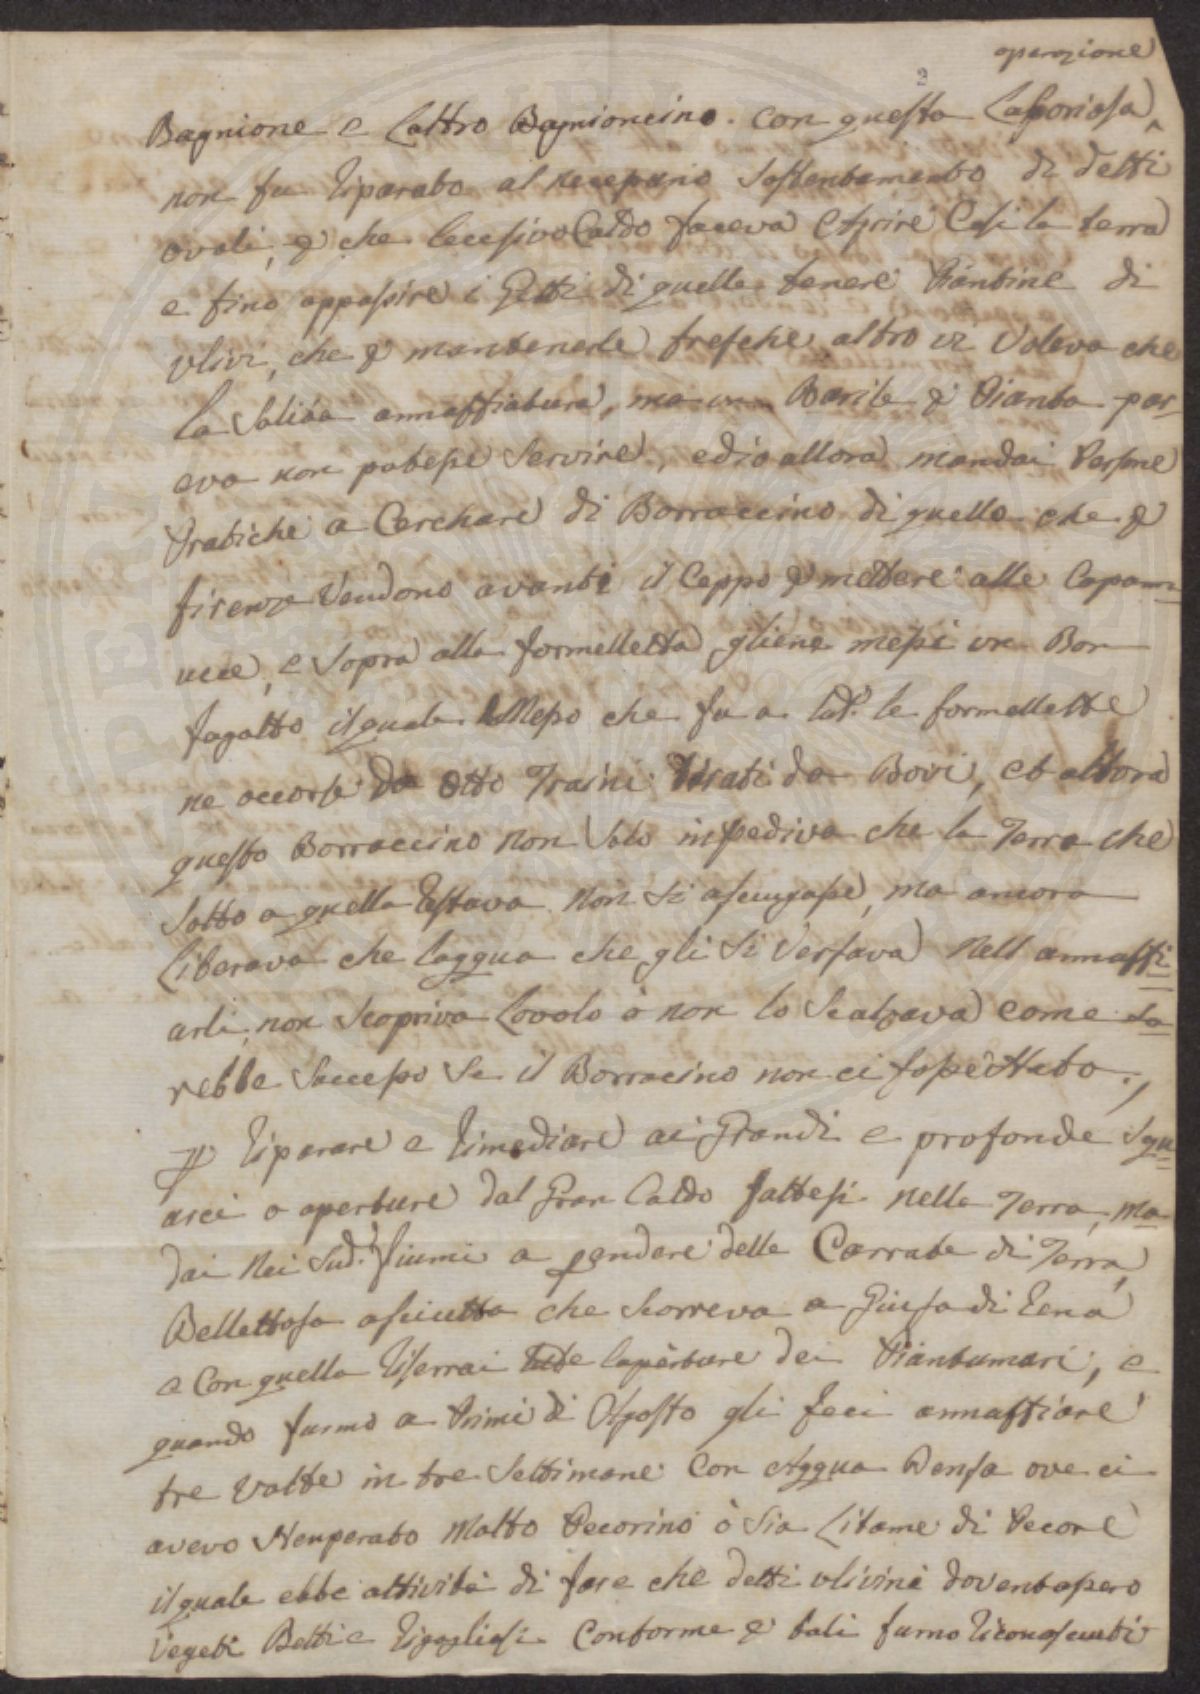 operazione
2
Bagnione e Laltro Bagnioncino. con questa Laboriosa
non fu riparato al necessario Sostentamento di detti
ovoli, p che leccesivo Caldo faceva Aprire Cosi la terra
e fino appassire i Getti di quelle tenere Piantine di
vlivi, che p mantenerle fresche altro vi voleva che
la Solita annaffiatura, ma un Barile p Pianta par=
eva non potesse Servire, ed io allora mandai Persone
Pratiche a Cerchare di Borraccino di quello che p
firenze Vendono avanti il Ceppo p mettere alle Capann=
ucce, e Sopra alla formelletta gliene messi un Bor
fagotto il quale Messo che fu a tut.e le formellette
ne occorse da Otto Traini tirati da Bovi, et allora
questo Borraccino non Solo inpediva che la Terra che
Sotto a quello restava non Si asciugasse, ma ancora
Liberava che lacqua che gli Si versava nell annaffi=
arli, non Scopriva Lovolo ò non lo Scalzava come sa=
rebbe Saccesso Se il Borracino non ci fosse Stato.,
p riparare e rimediare ai Grandi e profonde Squ=
arci o aperture dal Gran Caldo fattesi nella Terra, ma=
dai Nei Sud.i fiumi a prendere delle Carrate di Terra
Bellettosa asciutta che Scorreva a Giusa di rena
e Con quella riserrai tutte laperture dei Piantumari, e
quando furno a Primi di Agosto gli feci annaffiare
tre volte in tre Settimane Con Acqua Densa ove ci
avevo Stenperato Molto Pecorino ò Sia Litame di Pecore
il quale ebbe attività di fare che detti vlivini doventassero
vegeti Belli e rigogliosi Conforme p tali furno riconosciuti